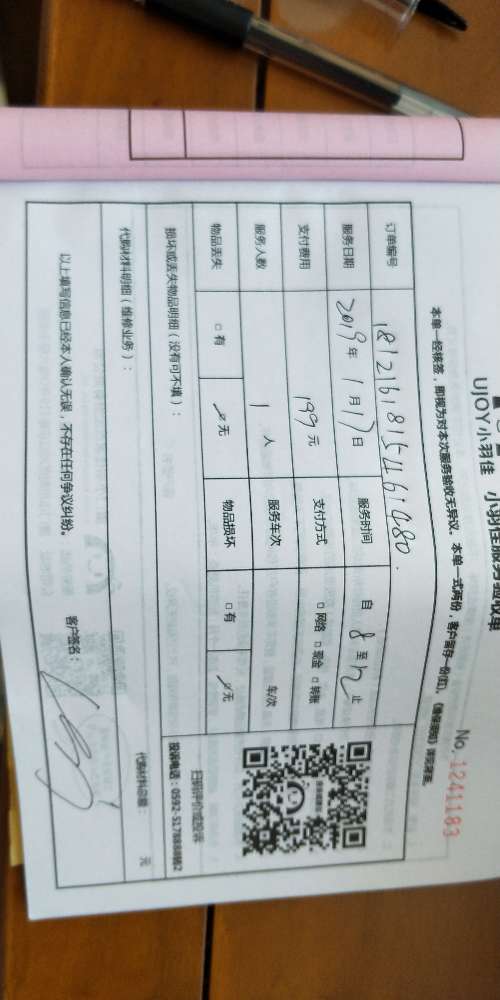 UJOY小羽佳 小羽佳服务验收单
No. 1241183
本单一经核签，即视为对本次服务验收无异议。本单一式两份，客户留存一份(红)。
订单编号
服务日期 2019年 1月17日 服务时间 自 8 至 12 止
支付费用 199元 支付方式 □网络 □现金 □转账
服务人数 1 人 服务车次 车/次
物品丢失 □有 ☑无 物品损坏 □有 ☑无
扫码评价或投诉
投诉电话：0592-5178888转2
损坏或丢失物品明细（没有可不填）：
代购材料明细（维修业务）： 代购材料总额： 元
以上填写信息已经本人确认无误，不存在任何争议纠纷。 客户签名：